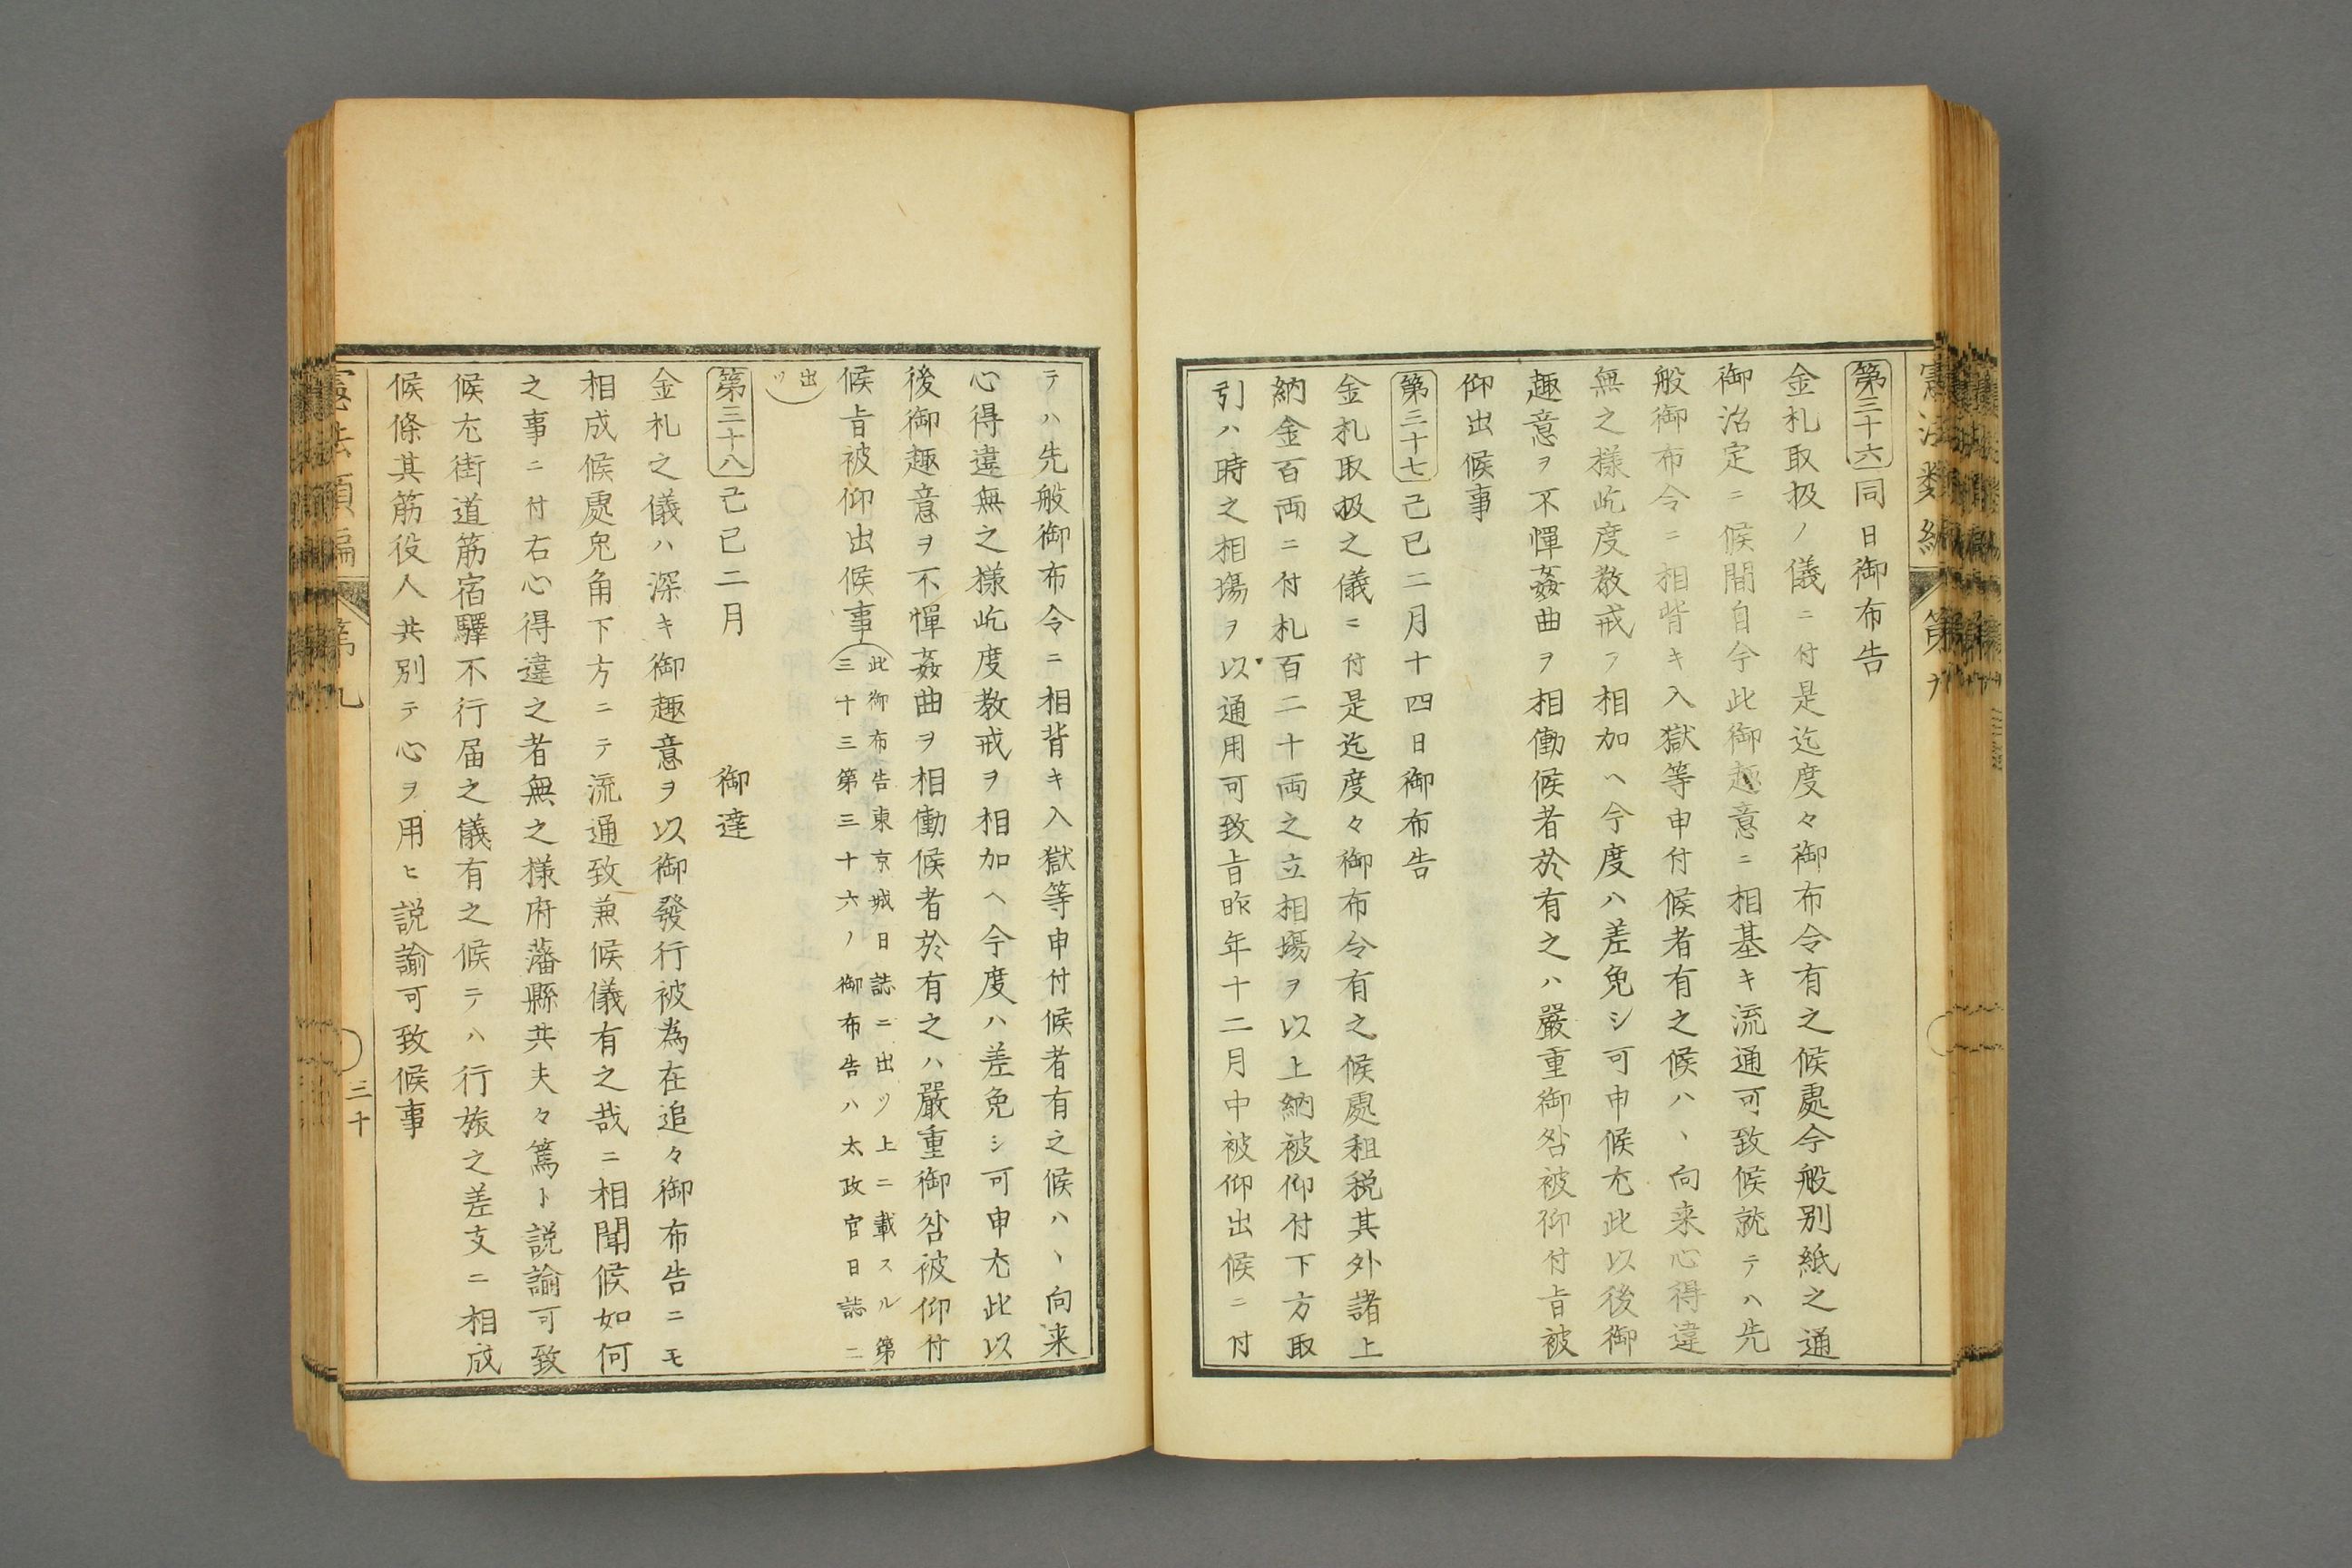 憲法類編 第九
第三十六 同日御布告
金札取扱ノ儀ニ付是迄度々御布令有之候處今般別紙之通
御治定ニ候間自今此御趣意ニ相基キ流通可致候就テハ先
般御布令ニ相背キ入獄等申付候者有之候ハヽ向来心得違
無之様屹度教戒ヲ相加ヘ今度ハ差免シ可申候尤此以後御
趣意ヲ不憚姦曲ヲ相働候者於有之ハ嚴重御咎被仰付旨被
仰出候事
第三十七 己巳二月十四日御布告
金札取扱之儀ニ付是迄度々御布令有之候處租税其外諸上
納金百両ニ付札百二十両之立相場ヲ以上納被仰付下方取
引ハ時之相場ヲ以通用可致旨昨年十二月中被仰出候ニ付
テハ先般御布令ニ相背キ入獄等申付候者有之候ハヽ向来
心得違無之様屹度教戒ヲ相加ヘ今度ハ差免シ可申尤此以
後御趣意ヲ不憚姦曲ヲ相働候者於有之ハ嚴重御咎被仰付
候旨被仰出候事
此御布告東京城日誌ニ出ツ上ニ載スル第
三十三第三十六ノ御布告ハ太政官日誌ニ
出
ツ
第三十八 己巳二月 御達
金札之儀ハ深キ御趣意ヲ以御發行被為在追々御布告ニモ
相成候處兎角下方ニテ流通致兼候儀有之哉ニ相聞候如何
之事ニ付右心得違之者無之様府藩縣共夫々篤ト説諭可致
候尤街道筋宿驛不行届之儀有之候テハ行旅之差支ニ相成
候條其筋役人共別テ心ヲ用ヒ説諭可致候事
憲法類編 第九 三十